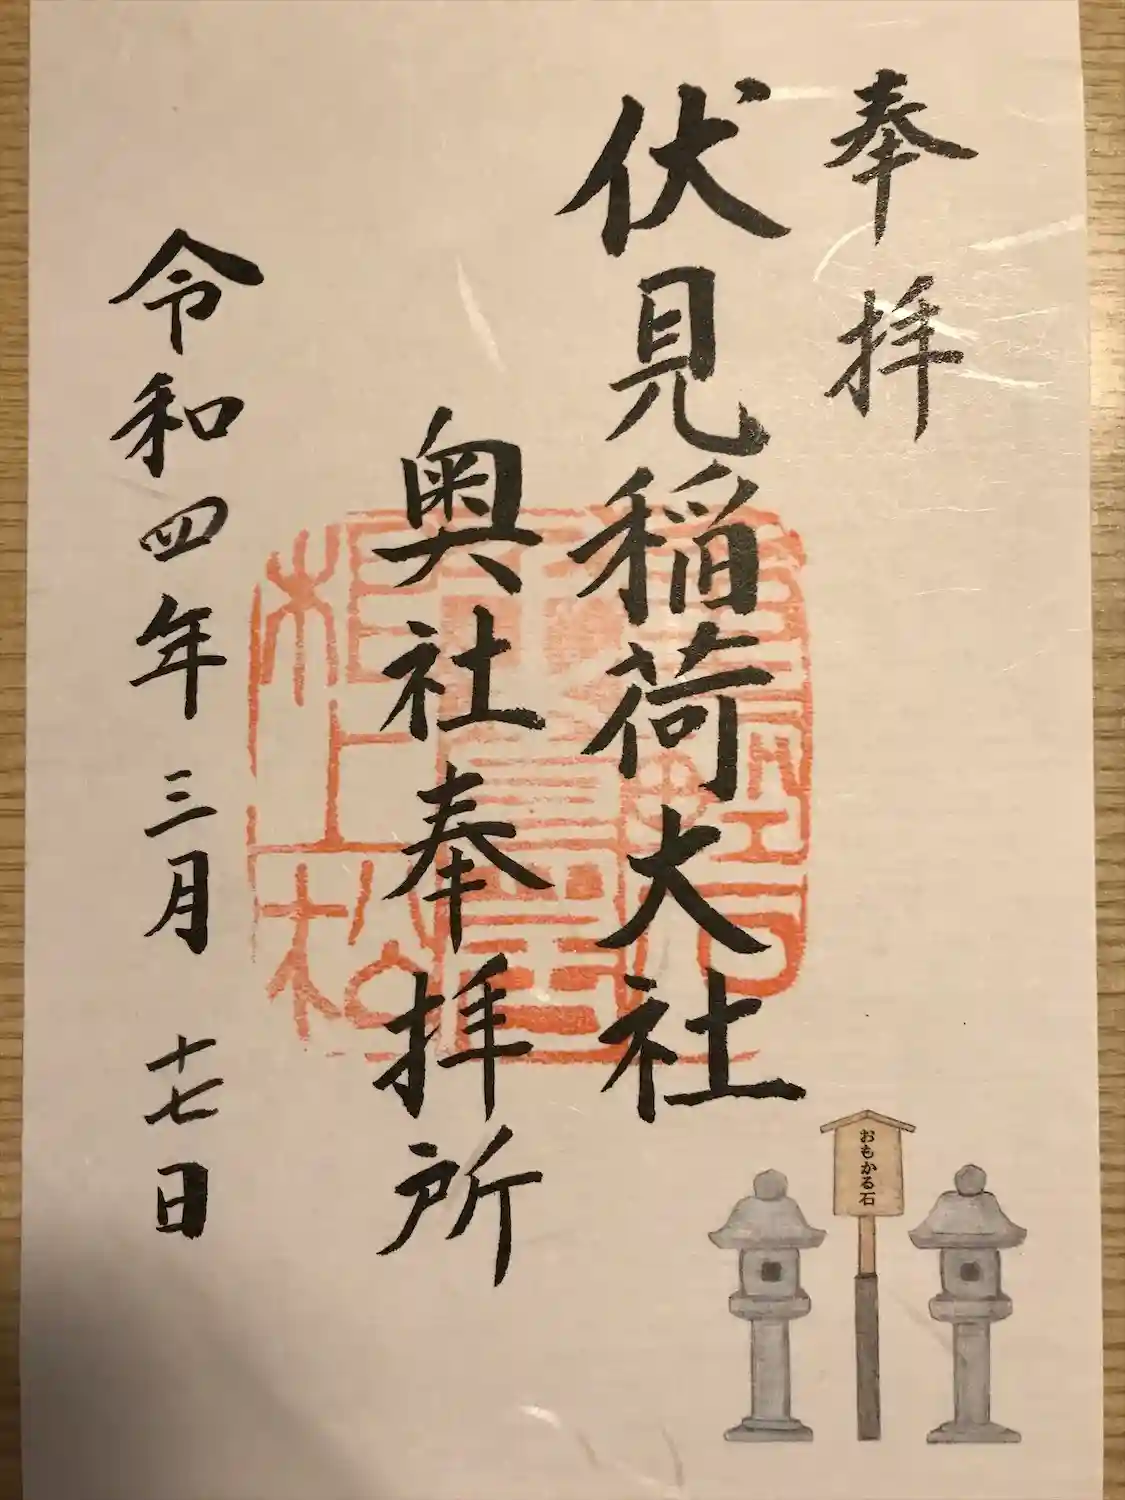 奉拝
伏見稲荷大社
奥社奉拝所
令和四年三月十七日
おもかる石